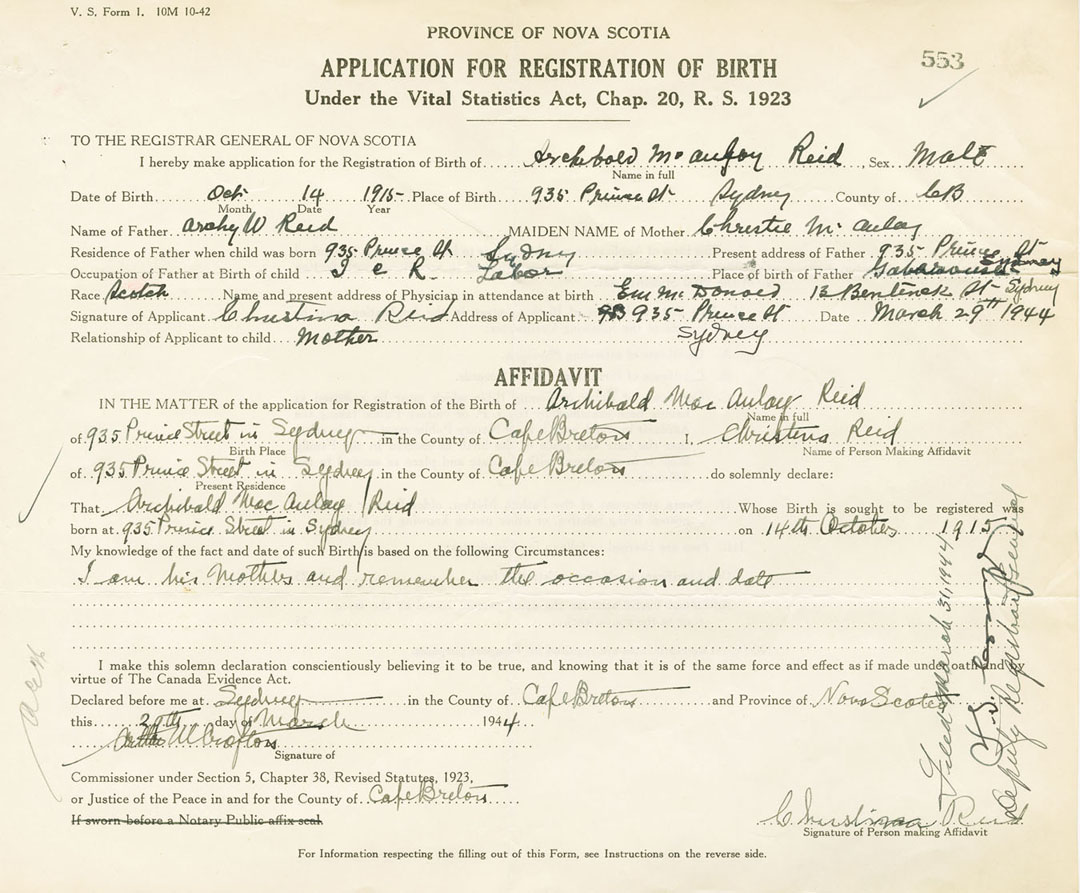 V. S. Form 1. 10M 10-42
PROVINCE OF NOVA SCOTIA
553
APPLICATION FOR REGISTRATION OF BIRTH
Under the Vital Statistics Act, Chap. 20, R. S. 1923
TO THE REGISTRAR GENERAL OF NOVA SCOTIA
I hereby make application for the Registration of Birth of Archibold Mc Reid, Sex Male
Name in full
Date of Birth Oct 14 1915 Place of Birth 935 Prince St Sydney County of CB
Month Date Year
Name of Father Archy W Reid MAIDEN NAME of Mother Christie Mc Aulay
Residence of Father when child was born 935 Prince St Sydney Present address of Father 935 Prince St Sydney
Occupation of Father at Birth of child I C R Labor Place of birth of Father
Race Scotch Name and present address of Physician in attendance at birth Em Mc Donald 13 Bentinck St Sydney
Signature of Applicant Christina Reid Address of Applicant 935 Prince St Date March 29th 1944
Relationship of Applicant to child Mother Sydney
AFFIDAVIT
IN THE MATTER of the application for Registration of the Birth of Archibald Mac Aulay Reid
Name in full
of 935 Prince Street in Sydney in the County of Cape Breton I, Christina Reid
Birth Place Name of Person Making Affidavit
of 935 Prince Street in Sydney in the County of Cape Breton do solemnly declare:
Present Residence
That Archibald Mac Aulay Reid Whose Birth is sought to be registered was
born at 935 Prince Street in Sydney on 14th October 1915
My knowledge of the fact and date of such Birth is based on the following Circumstances:
I am his Mother and remember the occasion and date
I make this solemn declaration conscientiously believing it to be true, and knowing that it is of the same force and effect as if made under oath and by
virtue of The Canada Evidence Act.
Declared before me at Sydney in the County of Cape Breton and Province of Nova Scotia
this 29th day of March 1944
Crofton
Signature of
Commissioner under Section 5, Chapter 38, Revised Statutes, 1923,
or Justice of the Peace in and for the County of Cape Breton
If sworn before a Notary Public affix seal
Christina Reid
Signature of Person making Affidavit
For Information respecting the filling out of this Form, see Instructions on the reverse side.
Filed March 31, 1944
Deputy Registrar General